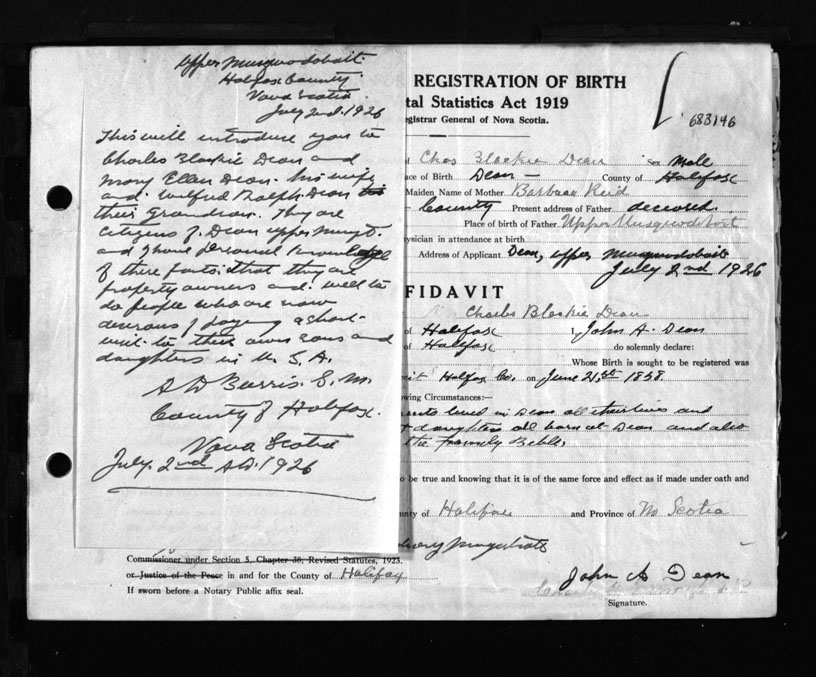 Upper Musquodoboit.
Halifax County
Nova Scotia
July 2nd. 1926
This will introduce you to
Charles Blackie Dean and
Mary Ellen Dean. his wife
and. Wilfred Ralph Dean
their Grandson. They are
citizens of Dean upper Musqt.
and I have personal knowledge
of these facts: that they are
property owners and. well to
do people who are now
desirous of paying a short
visit to their own sons and
daughters in U. S. A.
S. M.
County of Halifax.
Nova Scotia
July. 2nd A.D. 1926
REGISTRATION OF BIRTH
tal Statistics Act 1919
egistrar General of Nova Scotia.
683146
of Chas Blackie Dean Sex Male
ace of Birth Dean – County of Halifax
Maiden Name of Mother Barbara Reid
County Present address of Father deceased.
Place of birth of Father Upper Musquodoboit
ysician in attendance at birth
Address of Applicant Dean, upper Musquodoboit
July 2nd 1926
FIDAVIT
Charles Blackie Dean
of Halifax I, John A. Dean
of Halifax do solemnly declare:
Whose Birth is sought to be registered was
Halifax Co. on June 21st 1858.
owing Circumstances:—
lived in Dean all their lives and
daughters all born at Dean and also
the Family Bible,
o be true and knowing that it is of the same force and effect as if made under oath and
nty of Halifax and Province of N Scotia
Magistrate
Commissioner under Section 5, Chapter 38, Revised Statutes, 1923.
or Justice of the Peace in and for the County of Halifax
If sworn before a Notary Public affix seal.
John A Dean
Signature.